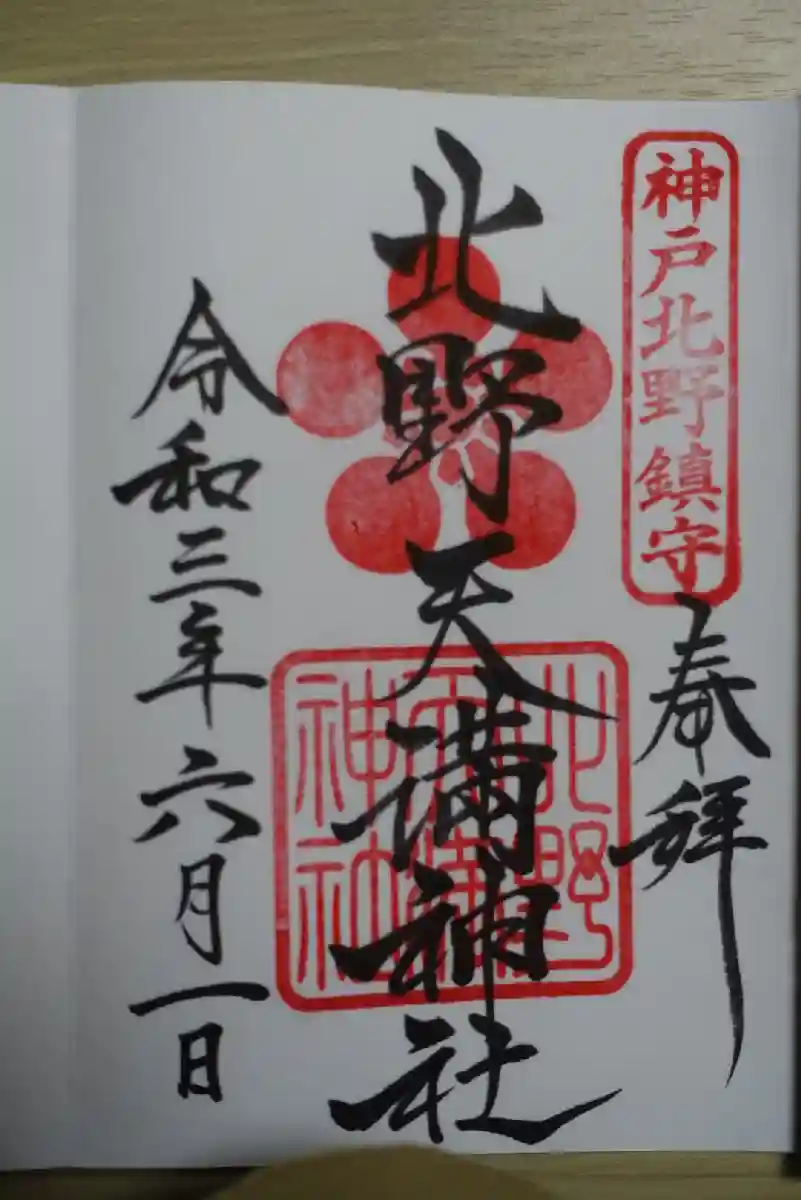 神戸北野鎮守
奉拝
北野天満神社
北野天満神社
令和三年六月一日